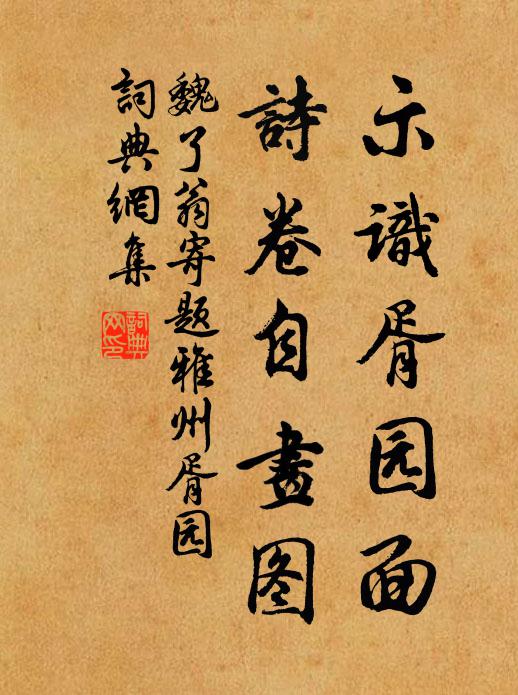 示識胥园面
詩卷自畫图
魏了翁寄题雅州胥园
詞典網集
詞典网印